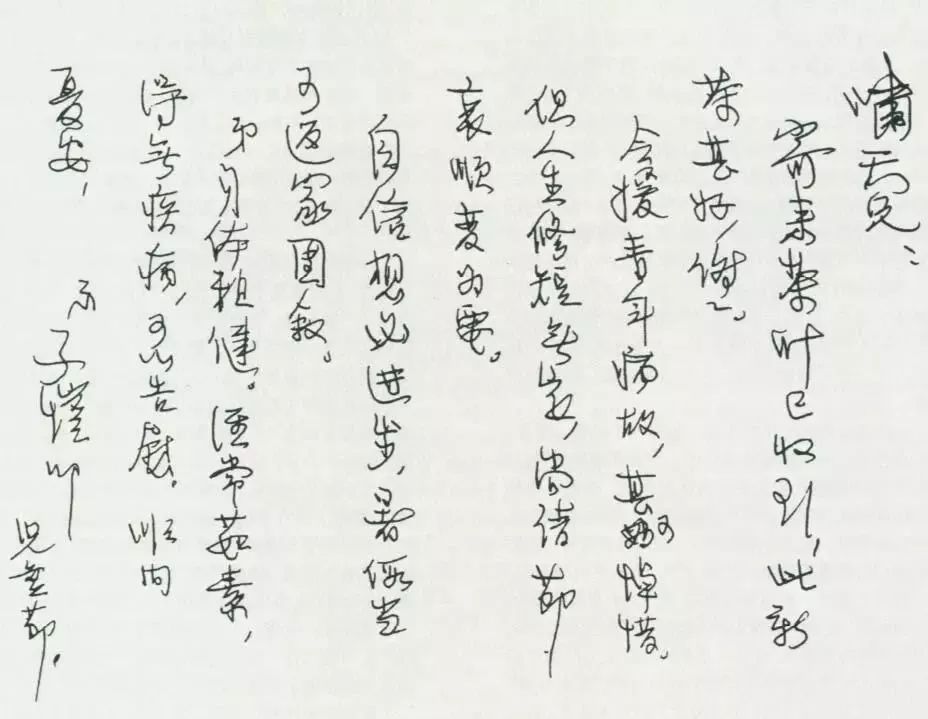 嘯天兄、
寄来茶叶已收到，此新
茶甚好，谢〻。
令媛青年病故，甚可悼惜。
但人生修短无定，尚请节
哀顺变为要。
自信想必进步，暑假当
可返家團叙。
弟身体粗健。经常茹素，
得无疾病，可以告慰。顺问
夏安，
弟子愷叩
児童节．